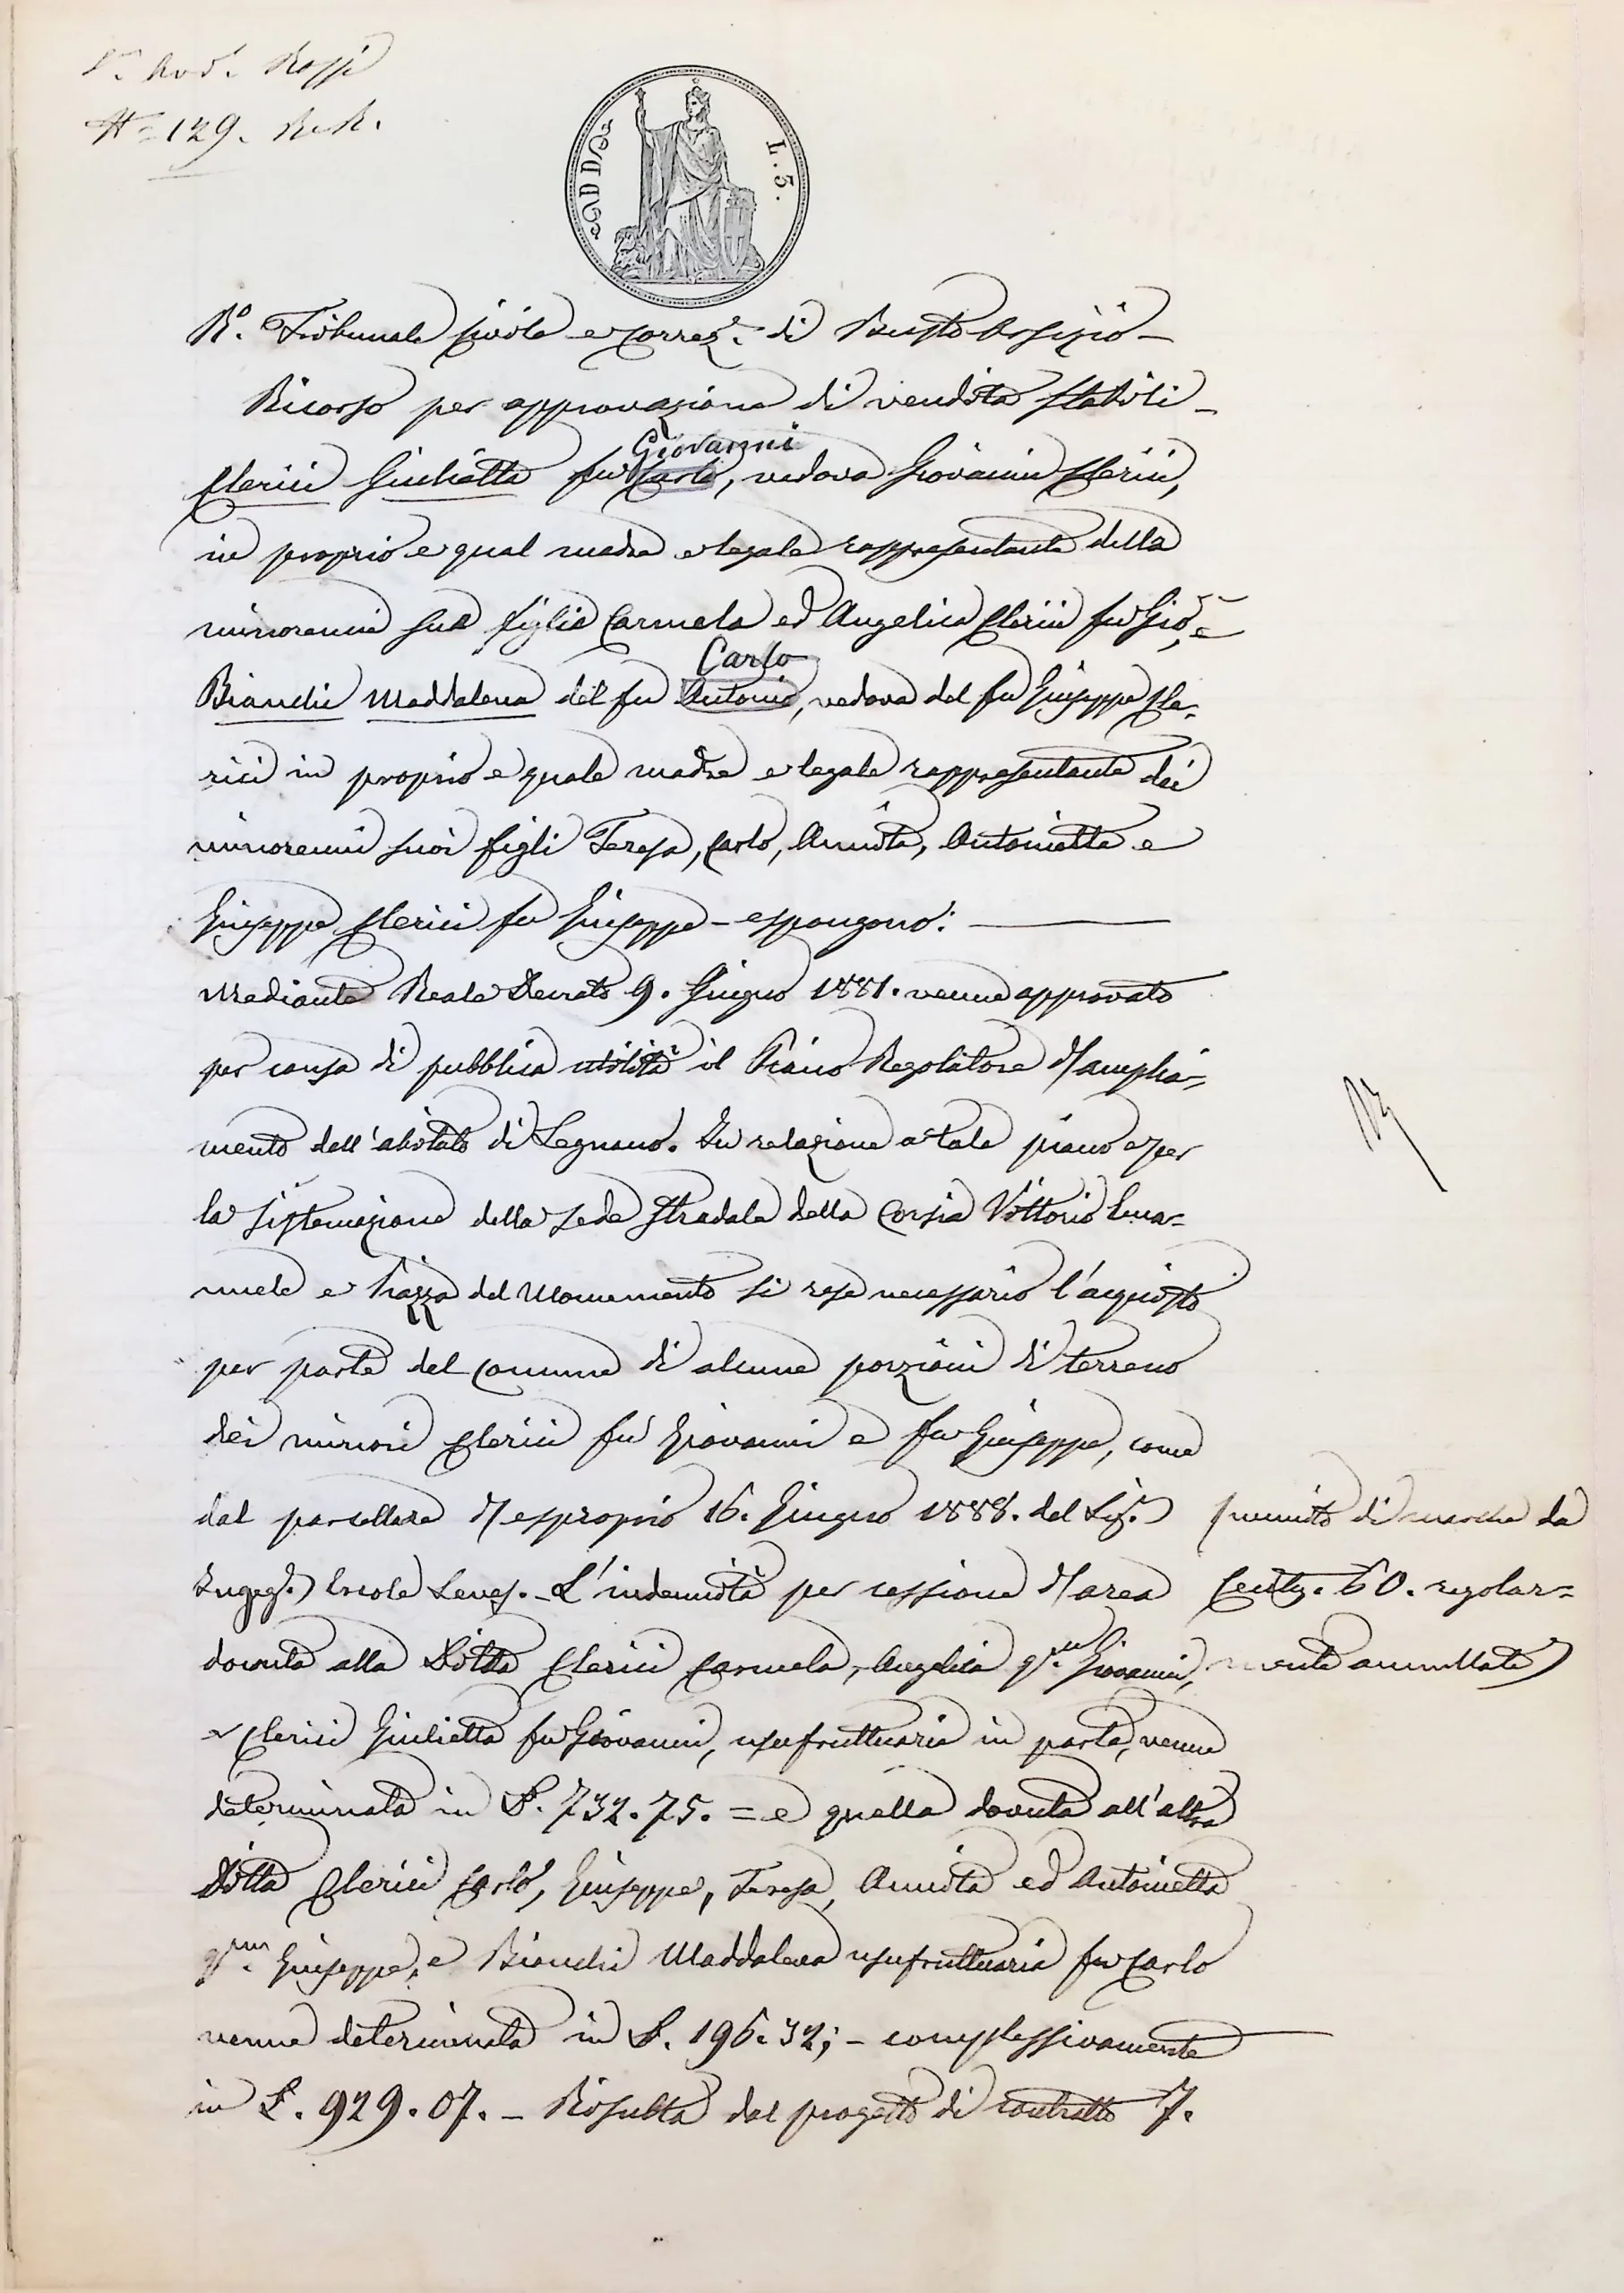 Rossi
N.° 129. R.R.
ADDA L. 5.
R.° Tribunale Civile e Correz.e di Busto Arsizio –
Ricorso per approvazione di vendita stabili –
Giovanni
Clerici Giulietta fu Carlo, vedova Giovanni Clerici,
in proprio e qual madre e legale rappresentante delle
minorenni sue figlie Carmela ed Angelica Clerici fu Gio, e
Carlo
Bianchi Maddalena del fu Antonio, vedova del fu Giuseppe Cle-
rici in proprio e quale madre e legale rappresentante dei
minorenni suoi figli Teresa, Carlo, Annita, Antonietta e
Giuseppe Clerici fu Giuseppe – espongono:
Mediante Reale Decreto 9. Giugno 1881. venne approvato
per causa di pubblica utilità il Piano Regolatore d'amplia-
mento dell'abitato di Legnano. In relazione a tale piano e per
la sistemazione della sede stradale della Corsia Vittorio Ema=
nuele e Piazza del Monumento si rese necessario l'acquisto
per parte del Comune di alcune porzioni di terreno
dei minori Clerici fu Giovanni e fu Giuseppe, come
dal parcellare d'esproprio 16. Giugno 1888. del Sig.r munito di marche da
Ingeg.e Ercole Seves. – L'indennità per cessione d'area Cent. 60. regolar=
dovuta alla Ditta Clerici Carmela, Angelica q.m Giovanni, mente annullate
e Clerici Giulietta fu Giovanni, usufruttuaria in parte, venne
determinata in L. 732.75. = e quella dovuta all'altra
Ditta Clerici Carlo, Giuseppe, Teresa, Annita ed Antonietta
q.m Giuseppe, e Bianchi Maddalena usufruttuaria fu Carlo
venne determinata in L. 196.32; – complessivamente
in L. 929.07. – Risulta dal progetto di contratto 7.